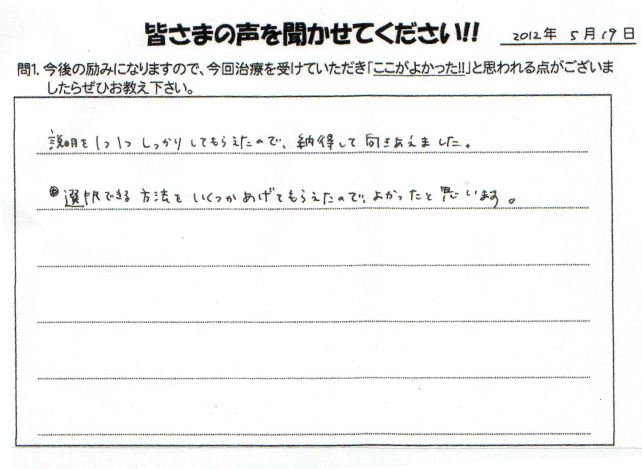 皆さまの声を聞かせてください!!
2012年 5月19日
問1. 今後の励みになりますので、今回治療を受けていただき「ここがよかった!!」と思われる点がございま
したらぜひお教え下さい。
説明を1つ1つしっかりしてもらえたので、納得して向きあえました。
選択できる方法をいくつかあげてもらえたので、よかったと思います。